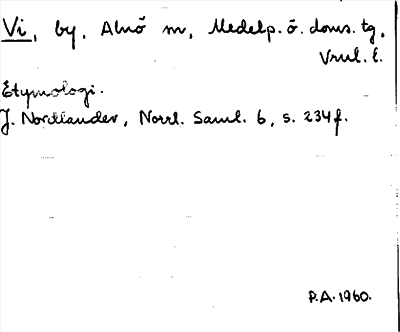 Vi, by, Alnö sn, Medelp. ö. doms. tg,
Vrnl. l.
Etymologi.
J. Nordlander, Norrl. Saml. 6, s. 234 f.
P.A. 1960.